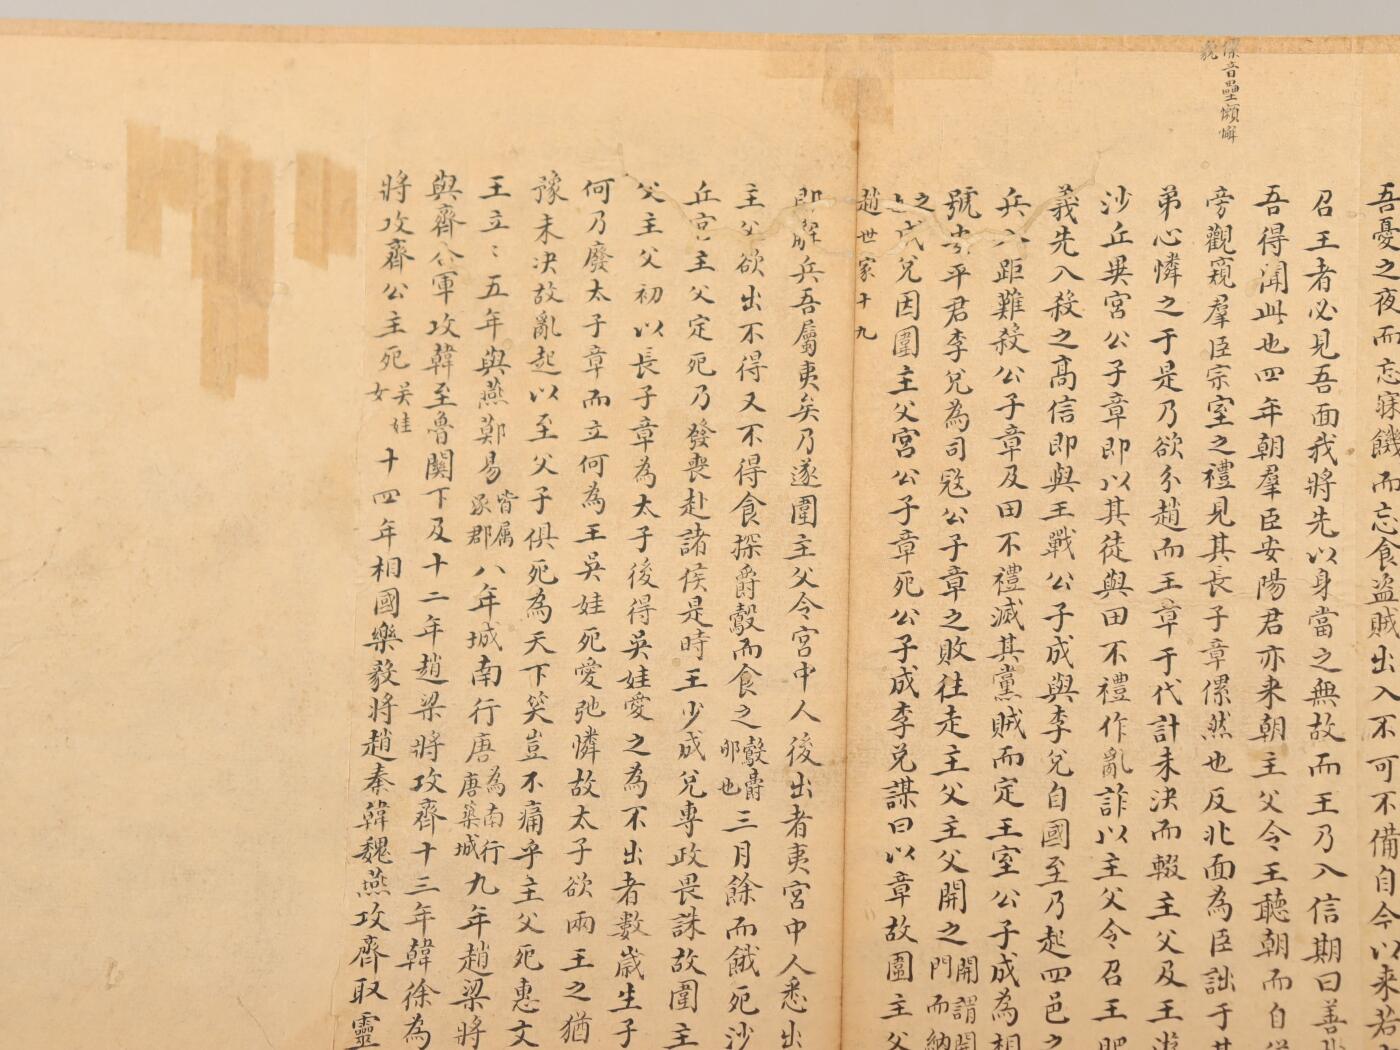 傫音壘懶懈
皃
吾憂之夜而忘寐饑而忘食盗賊出入不可不備自今以来若
召王者必見吾面我將先以身當之無故而王乃入信期曰善
吾得聞此也四年朝羣臣安陽君亦来朝主父令王聽朝而自
旁觀窺羣臣宗室之禮見其長子章傫然也反北面為臣詘于其
弟心憐之于是乃欲分趙而王章于代計未決而輟主父及王遊
沙丘異宮公子章即以其徒與田不禮作亂詐以主父令召王肥
義先入殺之高信即與王戰公子成與李兌自國至乃起四邑之
兵入距難殺公子章及田不禮滅其黨賊而定王室公子成為相
號安平君李兌為司寇公子章之敗往走主父主父開之開謂開門而納
之
成兌因圍主父宮公子章死公子成李兌謀曰以章故圍主父
趙世家十九
即解兵吾屬夷矣乃遂圍主父令宮中人後出者夷宮中人悉出
主父欲出不得又不得食探爵鷇而食之鷇爵卵也三月餘而餓死沙
丘宮主父定死乃發喪赴諸侯是時王少成兌專政畏誅故圍主
父主父初以長子章為太子後得吳娃愛之為不出者數歲生子
何乃廢太子章而立何為王吳娃死愛弛憐故太子欲兩王之猶
豫未決故亂起以至父子俱死為天下笑豈不痛乎主父死惠文
王立〻五年與燕鄚易皆属涿郡八年城南行唐為南行唐築城九年趙梁將
與齊合軍攻韓至魯關下及十二年趙梁將攻齊十三年韓徐為
將攻齊公主死吴娃女十四年相國樂毅將趙秦韓魏燕攻齊取靈